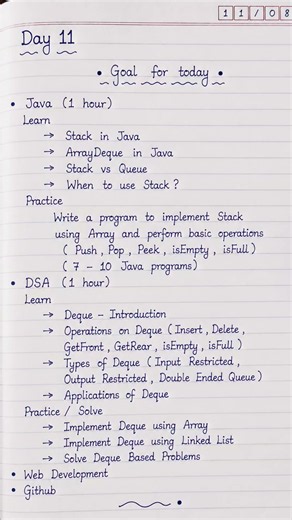 11/08
Day 11
• Goal for today •
• Java (1 hour)
Learn
→ Stack in Java
→ ArrayDeque in Java
→ Stack vs Queue
→ When to use Stack?
Practice
Write a program to implement Stack
using Array and perform basic operations
(Push, Pop, Peek, isEmpty, isFull)
(7 - 10 Java programs)
• DSA (1 hour)
Learn
→ Deque - Introduction
→ Operations on Deque (Insert, Delete,
GetFront, GetRear, isEmpty, isFull)
→ Types of Deque (Input Restricted,
Output Restricted, Double Ended Queue)
→ Applications of Deque
Practice / Solve
→ Implement Deque using Array
→ Implement Deque using Linked List
→ Solve Deque Based Problems
• Web Development
• Github